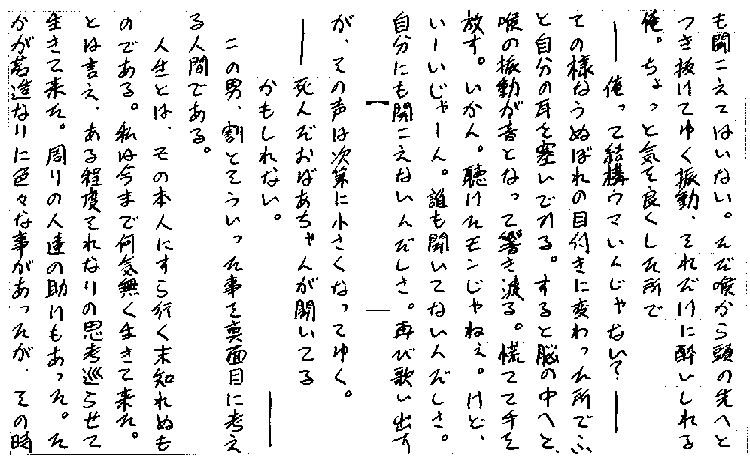 も聞こえてはいない。ただ喉から頭の先へと
つき抜けてゆく振動、それだけに酔いしれる
俺。ちょっと気を良くした所で
――俺って結構ウマいんじゃない？――
ての様なうぬぼれの目付きに変わった所でふ
と自分の耳を塞いでみる。すると脳の中へと、
喉の振動が音となって響き渡る。慌てて手を
放す。いかん。聴けたモンじゃねぇ。けど、
いーいじゃーん。誰も聞いてないんだしさ。
自分にも聞こえないんだしさ。再び歌い出す
が、その声は次第に小さくなってゆく。
――死んだおばあちゃんが聞いてる
かもしれない。――
この男、割とそういった事を真面目に考え
る人間である。
人生とは、その本人にすら行く末知れぬも
のである。私は今まで何気無く生きて来た。
とは言え、ある程度それなりの思考巡らせて
生きて来た。周りの人達の助けもあった。た
かが若造なりに色々な事があったが、その時